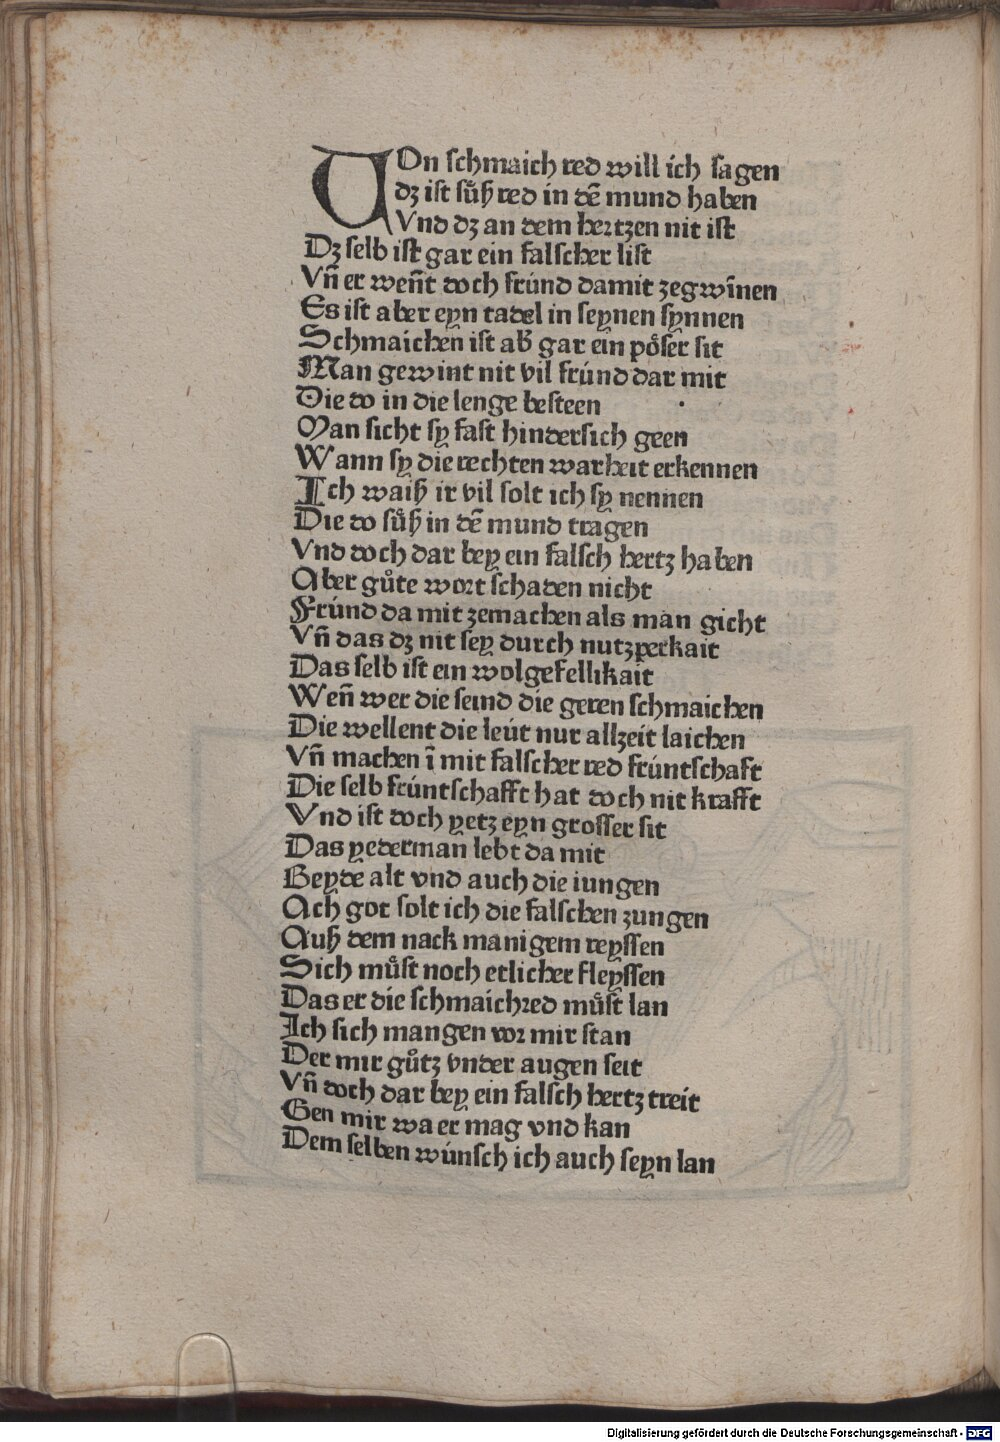 VOn schmaich red will ich sagen
dz ist suͤß red in dē mund haben
Vnd dz an dem hertzen nit ist
Dz selb ist gar ein falscher list
Vn̄ er wen̄t doch frúnd damit zegwīnen
Es ist aber eyn tadel in seynen synnen
Schmaichen ist ab̛ gar ein poͤser sit
Man gewint nit vil frúnd dar mit
Die do in die lenge besteen
Man sicht sy fast hindersich geen
Wann sy die rechten warheit erkennen
Ich waiß ir vil solt ich sy nennen
Die do suͤß in dē mund tragen
Vnd doch dar bey ein falsch hertz haben
Aber guͦte wort schaden nicht
Frúnd da mit zemachen als man gicht
Vn̄ das dz nit sey durch nutzperkait
Das selb ist ein wolgefellikait
Wen̄ wer die seind die geren schmaichen
Die wellent die leút nur allzeit laichen
Vn̄ machen ī mit falscher red frúntschaft
Die selb frúntschafft hat doch nit krafft
Vnd ist doch yetz eyn grosser sit
Das yederman lebt da mit
Beyde alt vnd auch die iungen
Ach got solt ich die falschen zungen
Auß dem nack manigem reyssen
Sich muͤst noch etlicher fleyssen
Das er die schmaichred muͤst lan
Ich sich mangen vor mir stan
Der mir guͦtz vnder augen seit
Vn̄ doch dar bey ein falsch hertz treit
Gen mir wa er mag vnd kan
Dem selben wúnsch ich auch seyn lan
Digitalisierung gefördert durch die Deutsche Forschungsgemeinschaft - DFG